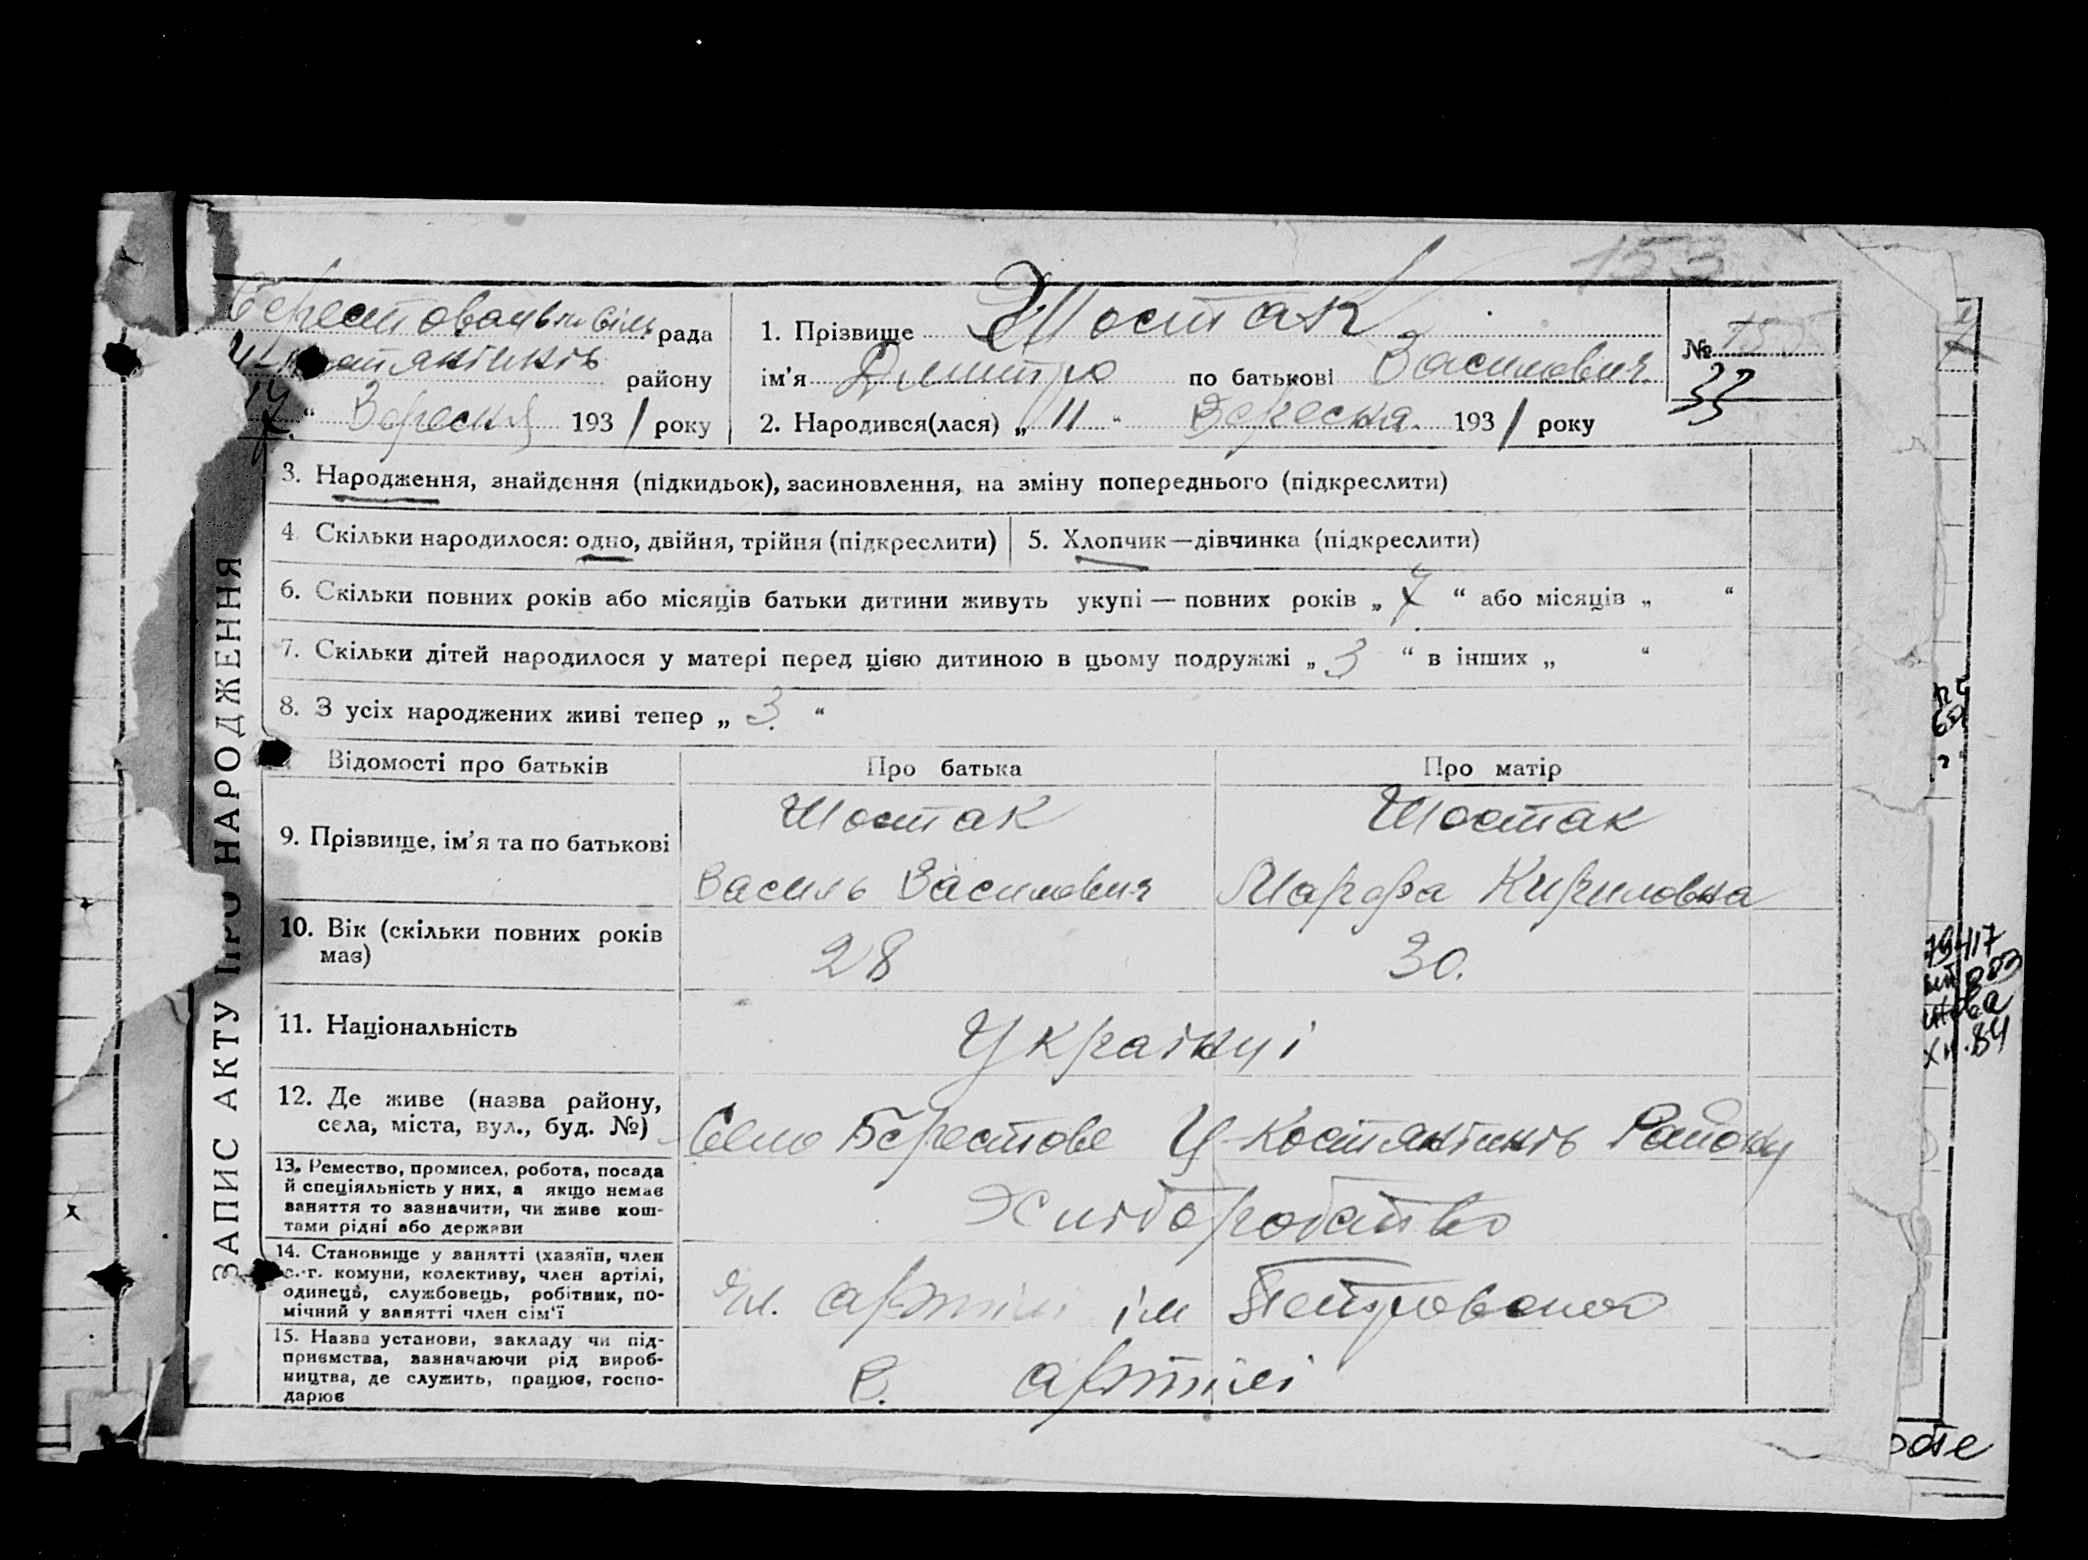 153
Берестовацьк сіль рада
Костянтинів району
" Вересня 1931 року
1. Прізвище Шостак
ім'я Дмитро по батькові Василович
2. Народився(лася) „ 11 " Вересня 1931 року
№
33
3. Народження, знайдення (підкидьок), засиновлення, на зміну попереднього (підкреслити)
4. Скільки народилося: одно, двійня, трійня (підкреслити)
5. Хлопчик—дівчинка (підкреслити)
6. Скільки повних років або місяців батьки дитини живуть укупі — повних років „ 7 " або місяців „ "
7. Скільки дітей народилося у матері перед цією дитиною в цьому подружжі „ 3 " в інших „ "
8. З усіх народжених живі тепер „ 3. "
ЗАПИС АКТУ ПРО НАРОДЖЕННЯ
Відомості про батьків Про батька Про матір
9. Прізвище, ім'я та по батькові
Шостак
Василь Василович
Шостак
Марфа Кириловна
10. Вік (скільки повних років
має)
28
30.
11. Національність
Українці
12. Де живе (назва району,
села, міста, вул., буд. №)
Село Берестове У-Костянтинів Району
13. Ремество, промисел, робота, посада
й спеціяльність у них, а якщо немає
заняття то зазначити, чи живе кош-
тами рідні або держави
Хліборобство
14. Становище у занятті (хазяїн, член
с.-г. комуни, колективу, член артілі,
одинець, службовець, робітник, по-
мічний у занятті член сім'ї
Чл. артілі ім Петровського
15. Назва установи, закладу чи під-
приємства, зазначаючи рід вироб-
ництва, де служить, працює, госпо-
дарює
В. артілі